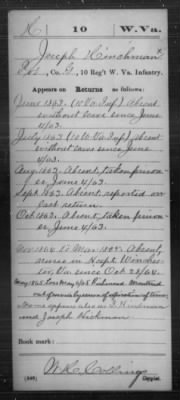 H 10 W.Va.
Joseph Hinchman
Pvt, Co. F, 10 Reg't W. Va. Infantry.
Appears on Returns as follows:
June 1863. (10 Va. Inf.) Absent
without leave since June
4/63.
July 1863 (10 W. Va. Inf.) absent
without leave since June
4/63.
Aug. 1863. Absent, taken prison-
er June 4/63.
Sept. 1863. Absent reported on
last return.
Oct 1863. Absent, taken prison-
er June 4/63.
Nov 1864 to Mar 1865. Absent,
nurse in Hospt. Winches-
ter, Va. since Oct 23/64.
May 1865. Mustered
out of service by reason of expiration of term.
Name appears also as Hinchman
and Joseph Hickman.
Book mark:
W. R. Collins
(546) Copyist.